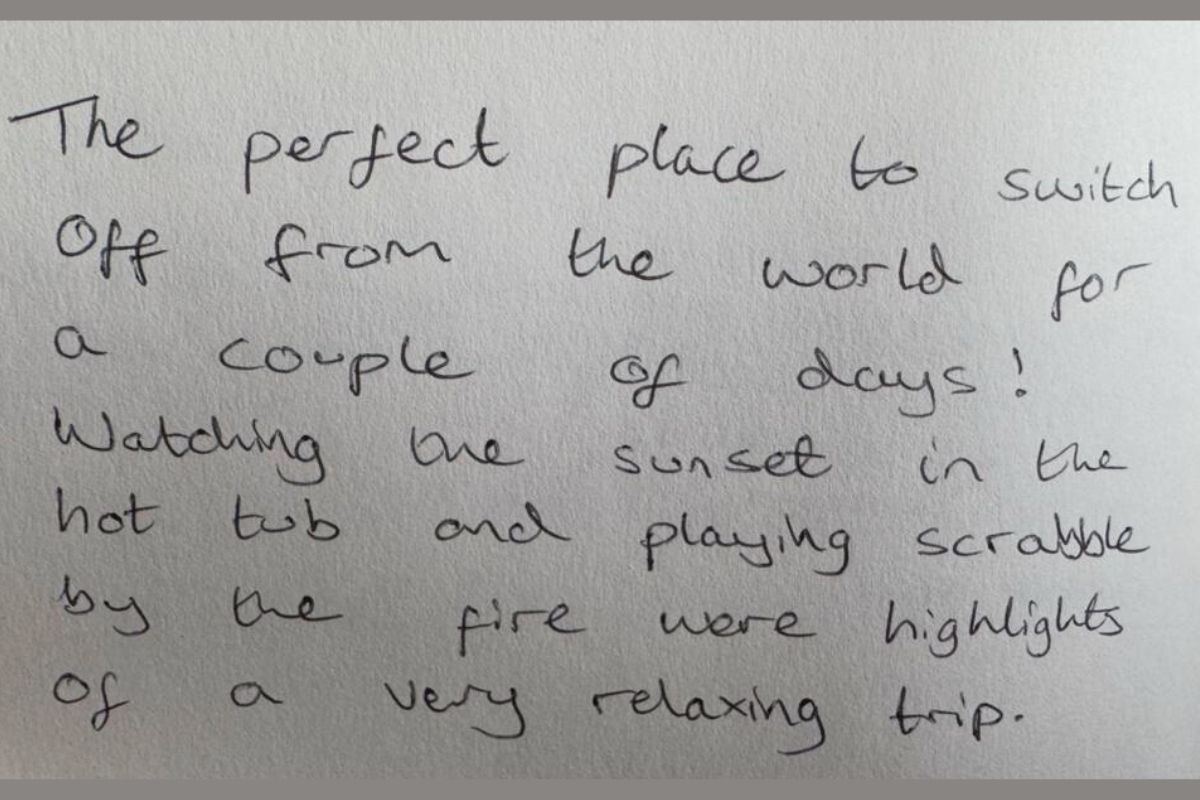 The perfect place to switch
off from the world for
a couple of days!
Watching the sunset in the
hot tub and playing scrabble
by the fire were highlights
of a very relaxing trip.